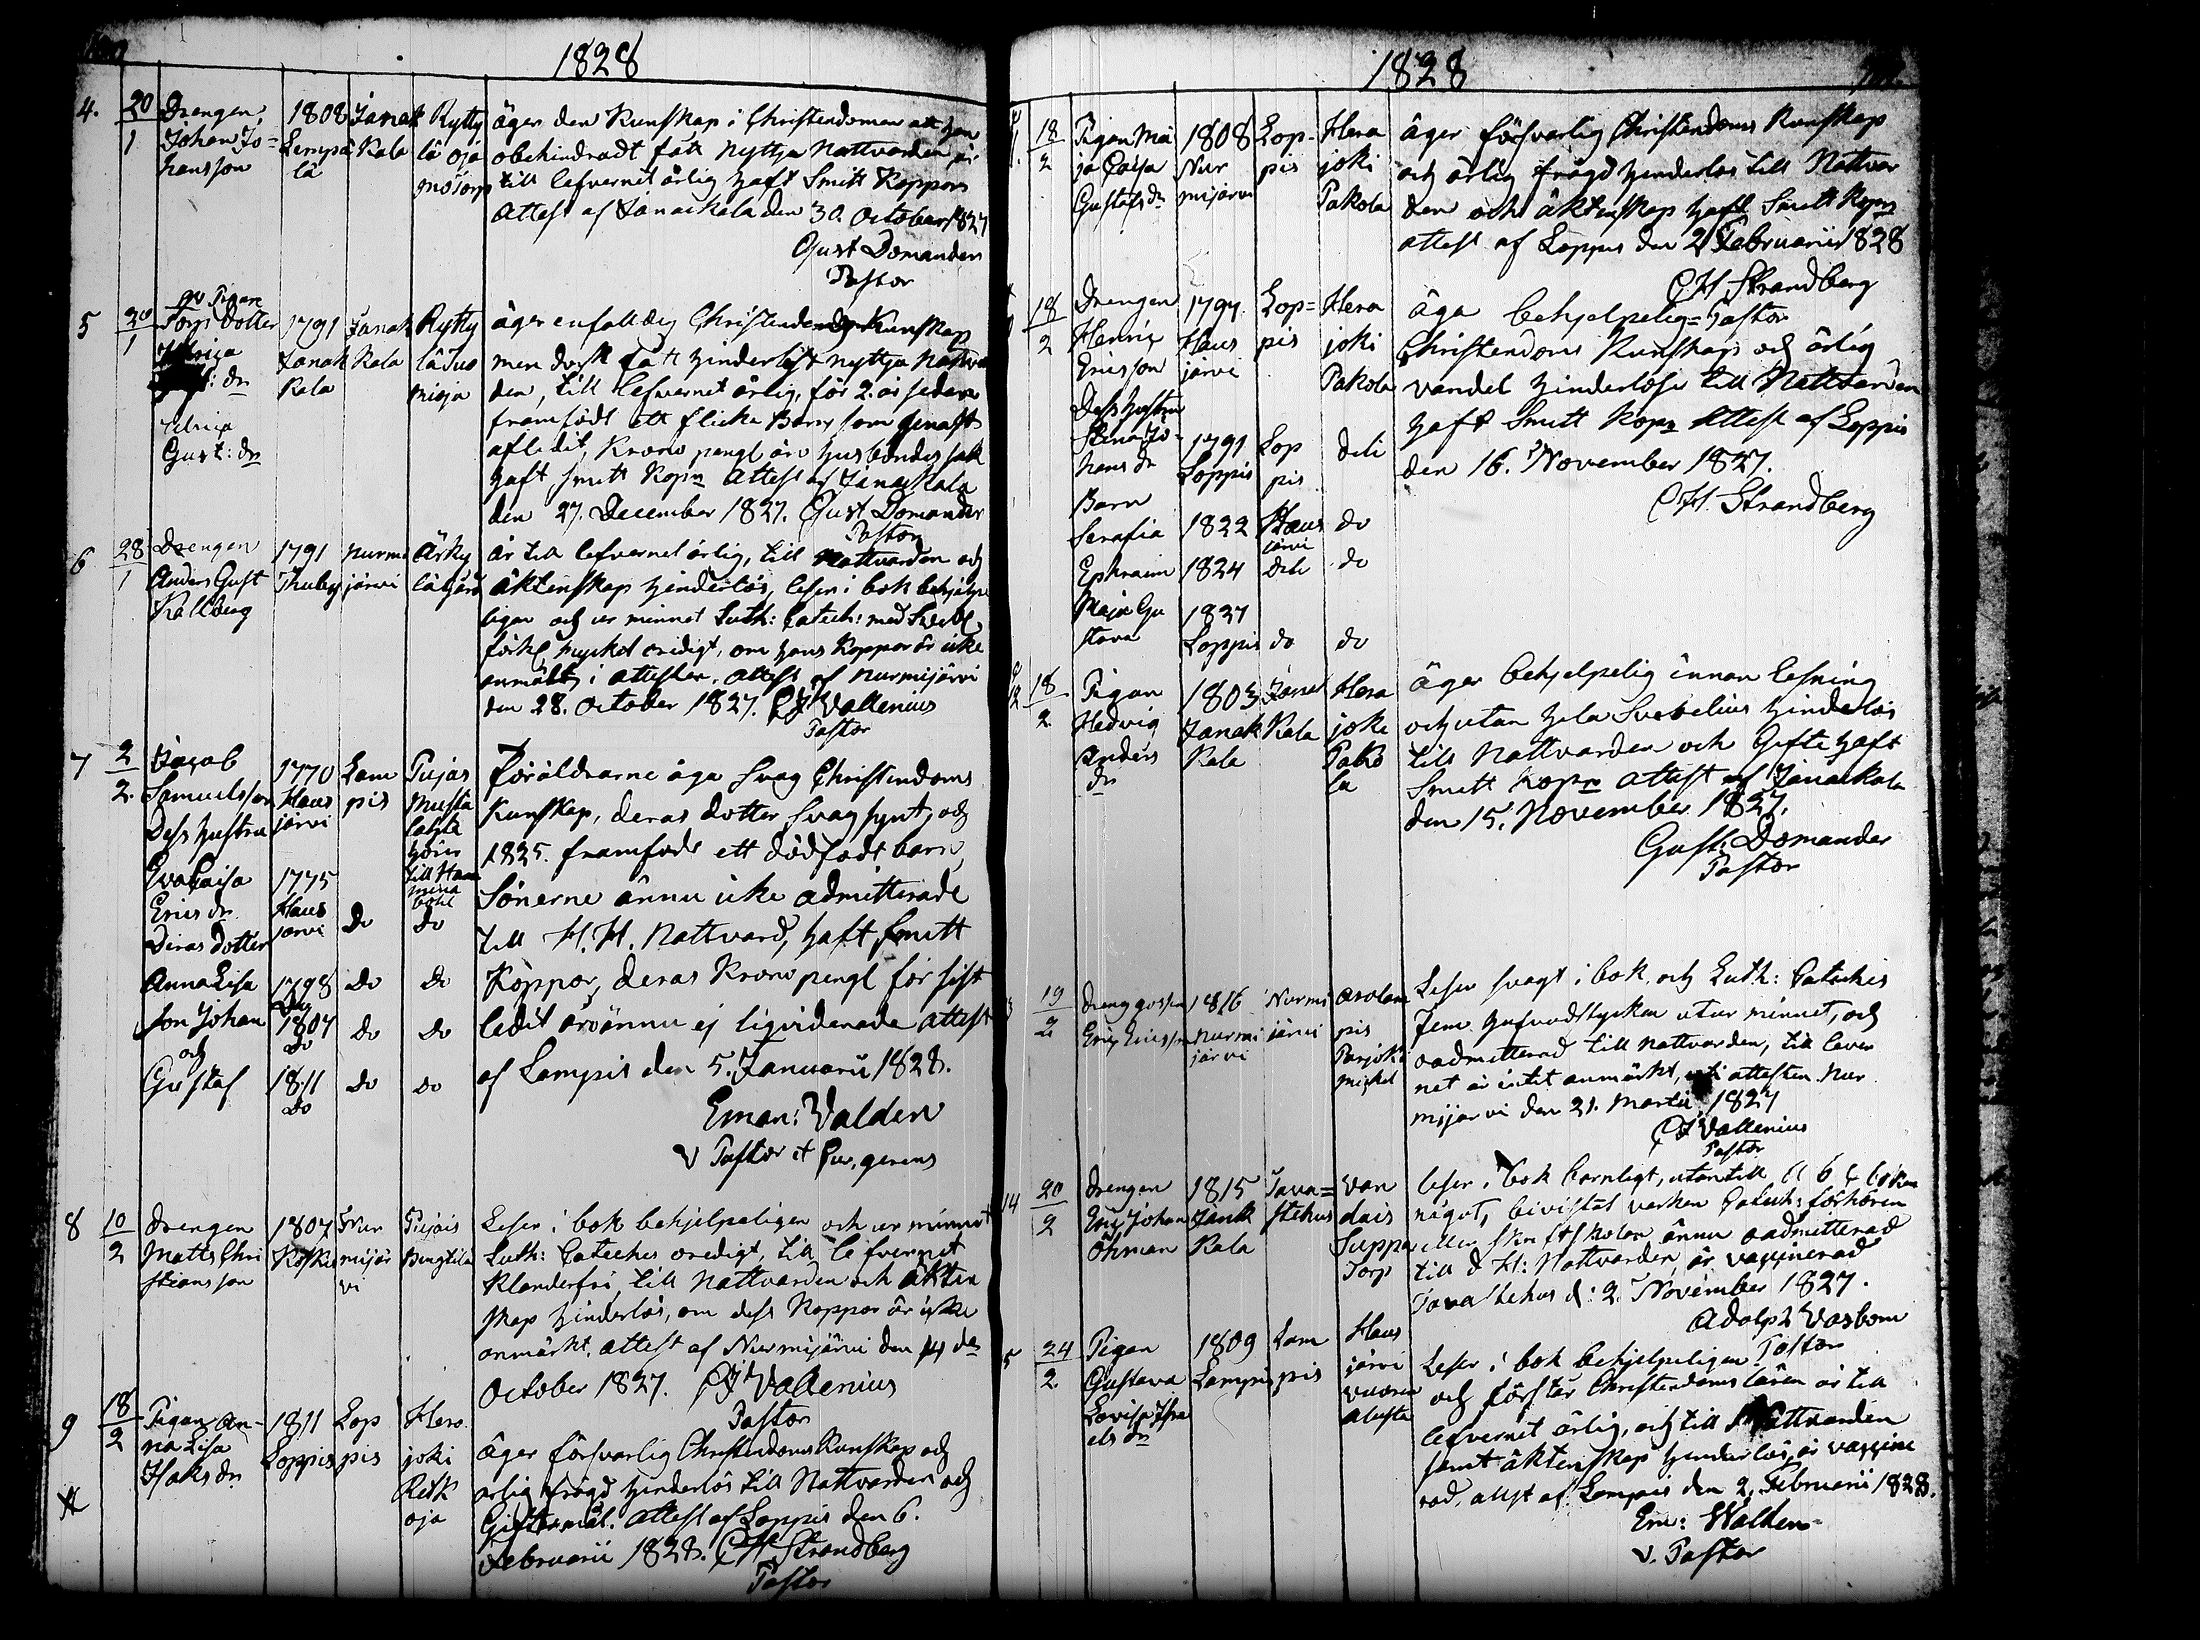 1828
4. 20/1 Drengen Johan Johansson 1808 Lempälä Janakkala Ryttylä Ojamo Torp
äger den Kunskap i Christendomen att han
obehindradt fått nyttja Nattvarden, är
till lefvernet ärlig haft Smitt Koppor
Attest af Janackala den 30. October 1827
Gust Domander
Pastor
5 20/1 Torp Dotter Ulrica Gust: dr 1791 Janakkala Janakkala Ryttylä
äger enfaldig Christendoms Kunskap
men dock fått hinderlöst nyttja Nattvar
den, till lefvernet ärlig, för 2. år sedan
framfödt ett flicke Barn som genast
afledit, Krono pengl äro husbondes sak
haft smitt Kopr Attest af Janackala
den 27. December 1827. Gust Domander
Pastor
6 28/1 Drengen Anders Gust Kallberg 1791 Thuby Nurmijärvi Ärkylä gård
är till lefvernet ärlig, till Nattvarden och
äktenskap hinderlös, läser i bok behjelpe
ligen och ur minnet Luth: Catech: med Svebel
förkl mycket oredigt, om hans Koppor är icke
anmält i attesten. Attest af Nurmijärvi
den 28. October 1827. C J Vallenius
Pastor
7 2/2 Jacob Samuelsson 1770 Hausjärvi Lampis
Dess hustru Eva Caisa Erics dr 1775 Hausjärvi Do Do
Deras dotter Anna Lisa 1798 Do Do Do
Son Johan 1807 Do Do Do
och Gustaf 1811 Do Do Do
Föräldrarne äga svag Christendoms
Kunskap, deras dotter svag synt, och
1825. framfödt ett dödfödt barn,
Sönerne ännu icke admitterade
till H. H. Nattvard, haft smitt
Koppor, deras Krono pengl för sist
ledit år ännu ej liqviderade attest
af Lampis den 5. Januarii 1828.
Eman: Valden
V Pastor et Cur. gerens
8 10/2 Drengen Matts Christiansson 1807 Koskis Nurmijärvi
Leser i bok behjelpeligen och ur minnet
Luth: Cateches oredigt, till lefvernet
Klanderfri, till Nattvarden och äkten
skap hinderlös, om dess Koppor är icke
anmärkt. attest af Nurmijärvi den 14 de
October 1827. C J Vallenius
Pastor
9 18/2 Pigan Anna Lisa Isaks dr 1811 Loppis Loppis Herajoki
äger försvarlig Christendoms Kunskap och
ärlig frägd hinderlös till Nattvarden och
Giftermål. Attest af Loppis den 6.
Februarii 1828. C H Strandberg
Pastor
1828
18/2 Pigan Maja Caisa Gustafs dr 1808 Nurmijärvi Loppis Herajoki Pakola
äger försvarlig Christendoms Kunskap
och ärlig frägd hinderlös till Nattvar
den och äktenskap haft Smitt Kopr
attest af Loppis den 2 Februarii 1828
C H Strandberg
Pastor
18/2 Drengen Henric Ericsson 1797 Hausjärvi Loppis Herajoki Pakola
Dess hustru Stina Johans dr 1791 Loppis Loppis
Barn Serafia 1822 Hausjärvi do
Ephraim 1824 do
Maja Gustava 1827 Loppis do do
äga behjelpelig
Christendoms Kunskap och ärlig
vandel hinderlöse till Nattvarden
haft Smitt Kopr Attest af Loppis
den 16. November 1827.
C H Strandberg
12 18/2 Pigan Hedvig Anders dr 1803 Janakkala Janakkala Herajoki Pakola
äger behjelpelig innan lesning
och utan hela Svebelius hinderlös
till Nattvarden och Gifte haft
Smitt Kopr attest af Janackala
den 15. November 1827.
Gust: Domander
Pastor
19/2 Drenggossen Eric Ericsson 1816 Nurmijärvi Nurmijärvi
Leser svagt i bok och Luth: Cateches
fem hufvudstycken utur minnet, och
oadmitterad till Nattvarden, till lever
net är intet anmärkt, i attesten. Nur
mijärvi den 21. Martii 1827
C J Vallenius
Pastor
14 20/2 Drengen Eric Johan Öhman 1815 Janakkala Tavastehus Vandais Suppa Torp
leser i bok barnligt, utantill
något, bivistat varken Catech: förhören
eller skriftskolan ännu oadmitterad
till d H: Nattvarden, är vaccinerad
Tavastehus d: 2. November 1827.
Adolph
Pastor
24/2 Pigan Gustava Lovisa Israels dr 1809 Lampis Lampis Hausjärvi
Leser i bok behjelpeligen
och förstår Christendoms läran är till
lefvernet ärlig, och till Nattvarden
samt äktenskap hinderlös, är vaccine
rad, attest af Lampis den 2. Februarii 1828.
Em: Walden
V. Pastor